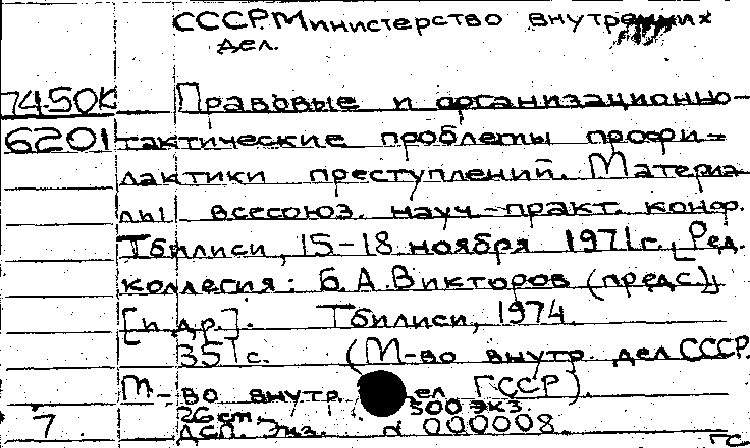 СССР. Министерство внутренних
дел.
74-50К Правовые и организационно-
6201 тактические проблемы профи-
лактики преступлений. Материа-
лы всесоюз. науч.-практ. конф.
Тбилиси, 15-18 ноября 1971г. [Ред.
коллегия: Б.А.Викторов (предс.)
[и др.]. Тбилиси, 1974.
351с. (М-во внутр. дел СССР.
М-во внутр. дел ГССР).
26см. 500 экз.
7 ДСП. Экз. № 000008.